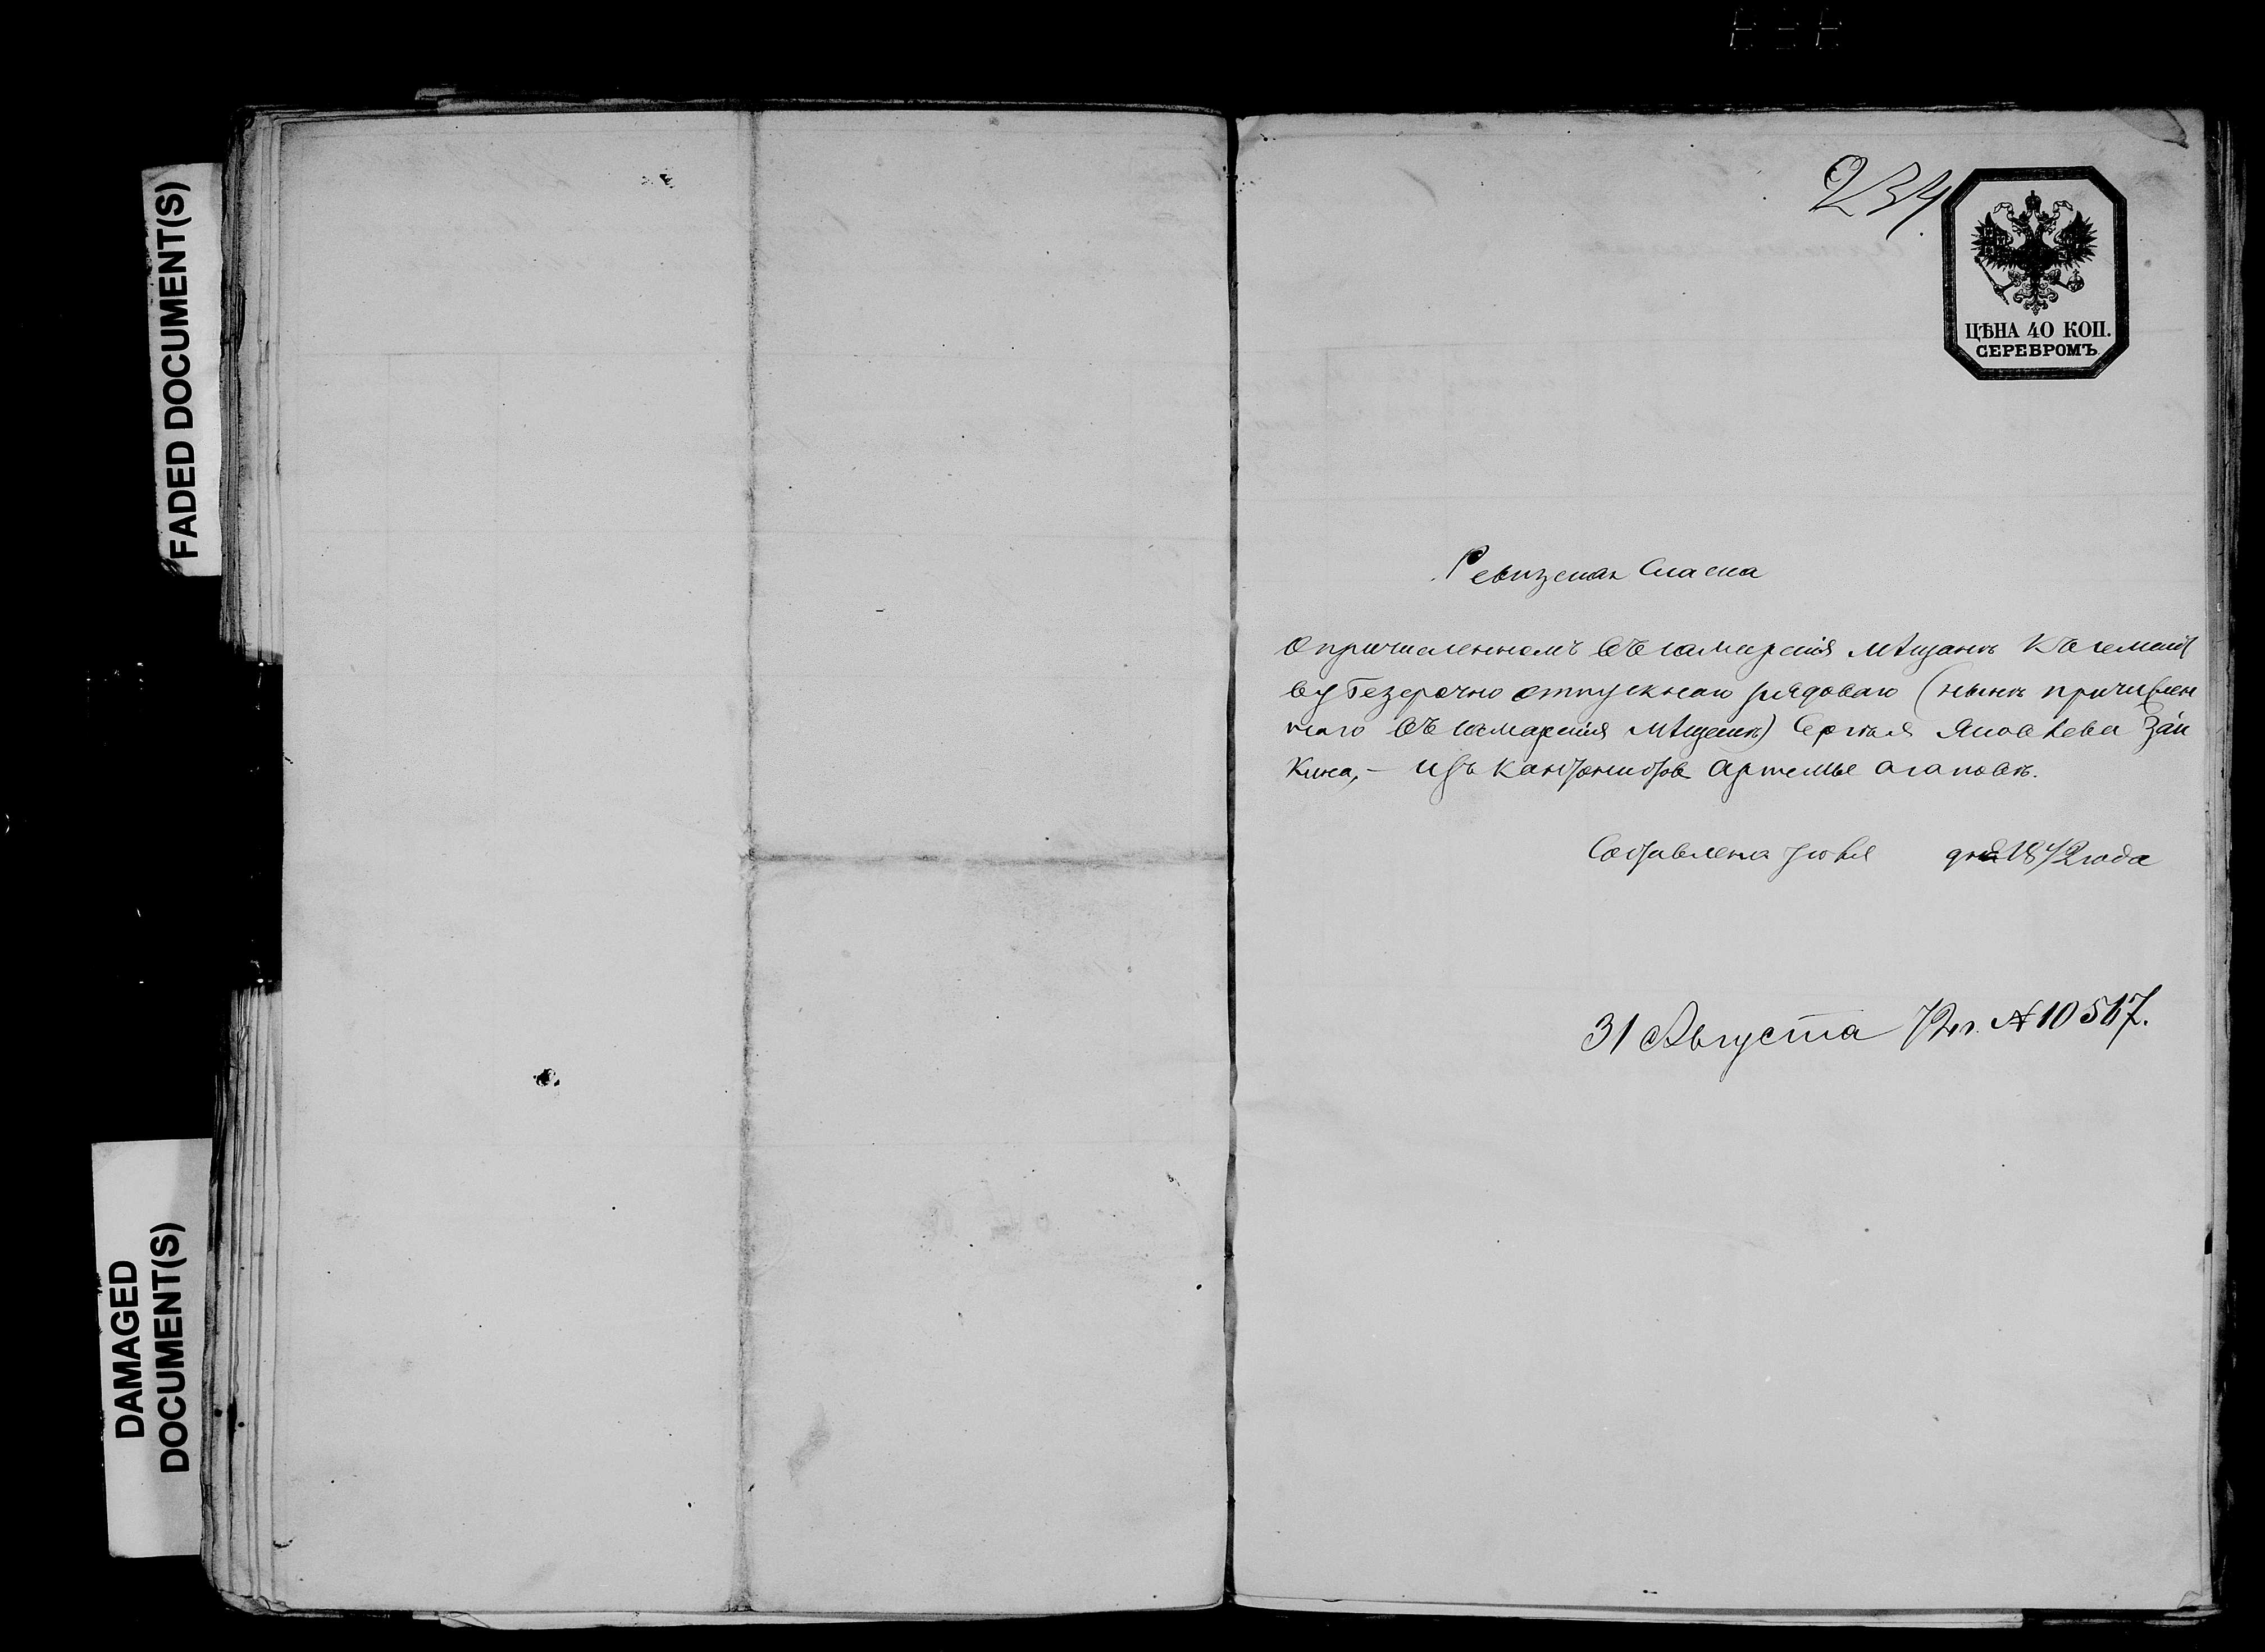 FADED DOCUMENT(S)
DAMAGED
DOCUMENT(S)
234.
ЦѢНА 40 КОП.
СЕРЕБРОМЪ.
Ревизская Сказка
О причисленномъ въ самарскія мѣщане къ семейст
ву безсрочно отпускнаго рядоваго (нынѣ причислен
наго въ самарскія мѣщане) Сергѣя Яковлева Заи
кина, – изъ кантонистовъ Артемье Агаповѣ.
Составлена Іюля дня 1872 года
31 Августа 72 г. № 10517.